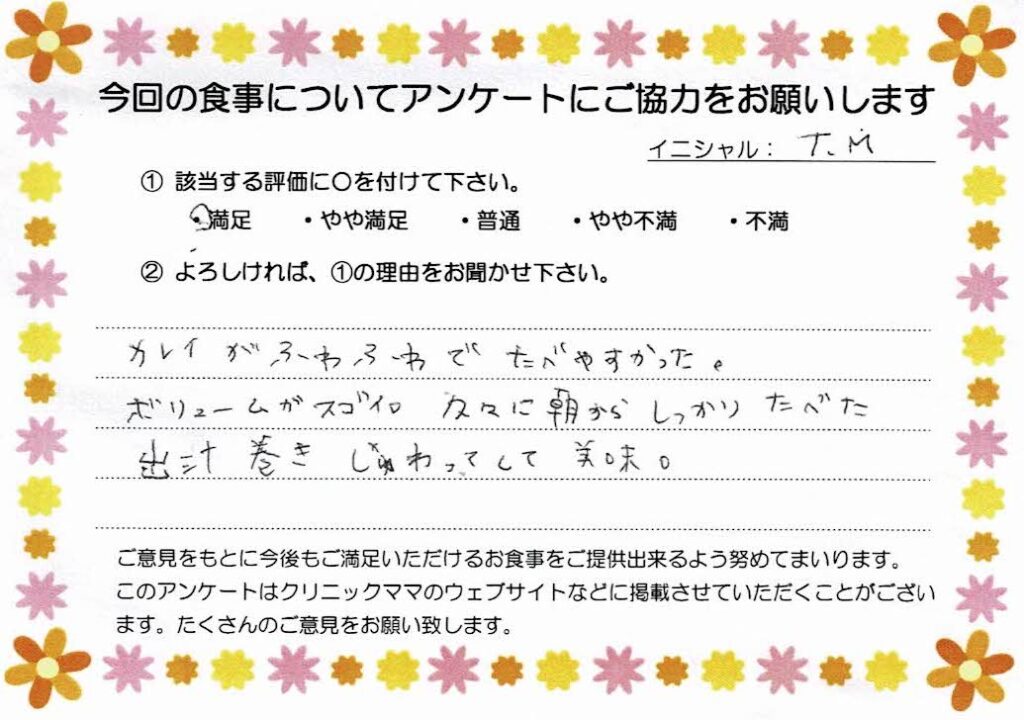 今回の食事についてアンケートにご協力をお願いします
イニシャル： T.M
① 該当する評価に○を付けて下さい。
・満足 ・やや満足 ・普通 ・やや不満 ・不満
② よろしければ、①の理由をお聞かせ下さい。
カレイがふわふわでたべやすかった。
ボリュームがスゴイ。久々に朝からしっかりたべた
出汁巻きじゅわってして美味。
ご意見をもとに今後もご満足いただけるお食事をご提供出来るよう努めてまいります。
このアンケートはクリニックママのウェブサイトなどに掲載させていただくことがござい
ます。たくさんのご意見をお願い致します。